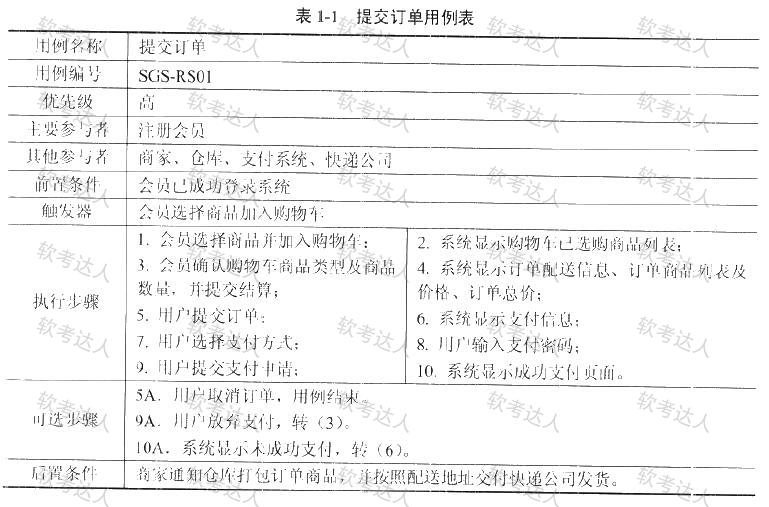 表 1-1 提交订单用例表
用例名称 提交订单
用例编号 SGS-RS01
优先级 高
主要参与者 注册会员
其他参与者 商家、仓库、支付系统、快递公司
前置条件 会员已成功登录系统
触发器 会员选择商品加入购物车
执行步骤
1. 会员选择商品并加入购物车; 2. 系统显示购物车已选购商品列表;
3. 会员确认购物车商品类型及商品
数量，并提交结算;
4. 系统显示订单配送信息、订单商品列表及
价格、订单总价;
5. 用户提交订单; 6. 系统显示支付信息;
7. 用户选择支付方式; 8. 用户输入支付密码;
9. 用户提交支付申请; 10. 系统显示成功支付页面。
可选步骤
5A. 用户取消订单，用例结束。
9A. 用户放弃支付，转（3）。
10A. 系统显示未成功支付，转（6）。
后置条件 商家通知仓库打包订单商品，并按照配送地址交付快递公司发货。
软考达人